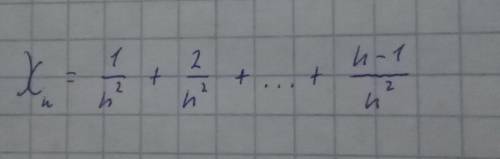 Xₙ = 1/n² + 2/n² + ... + (n-1)/n²